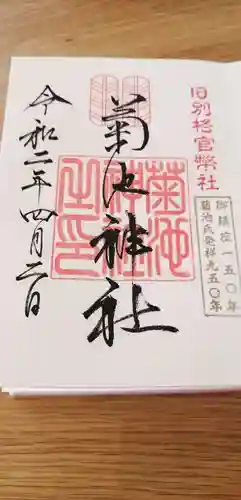 旧別格官幣社
御鎮座一五〇年
菊池氏発祥九五〇年
菊池神社
菊池神社之印
令和二年四月二日